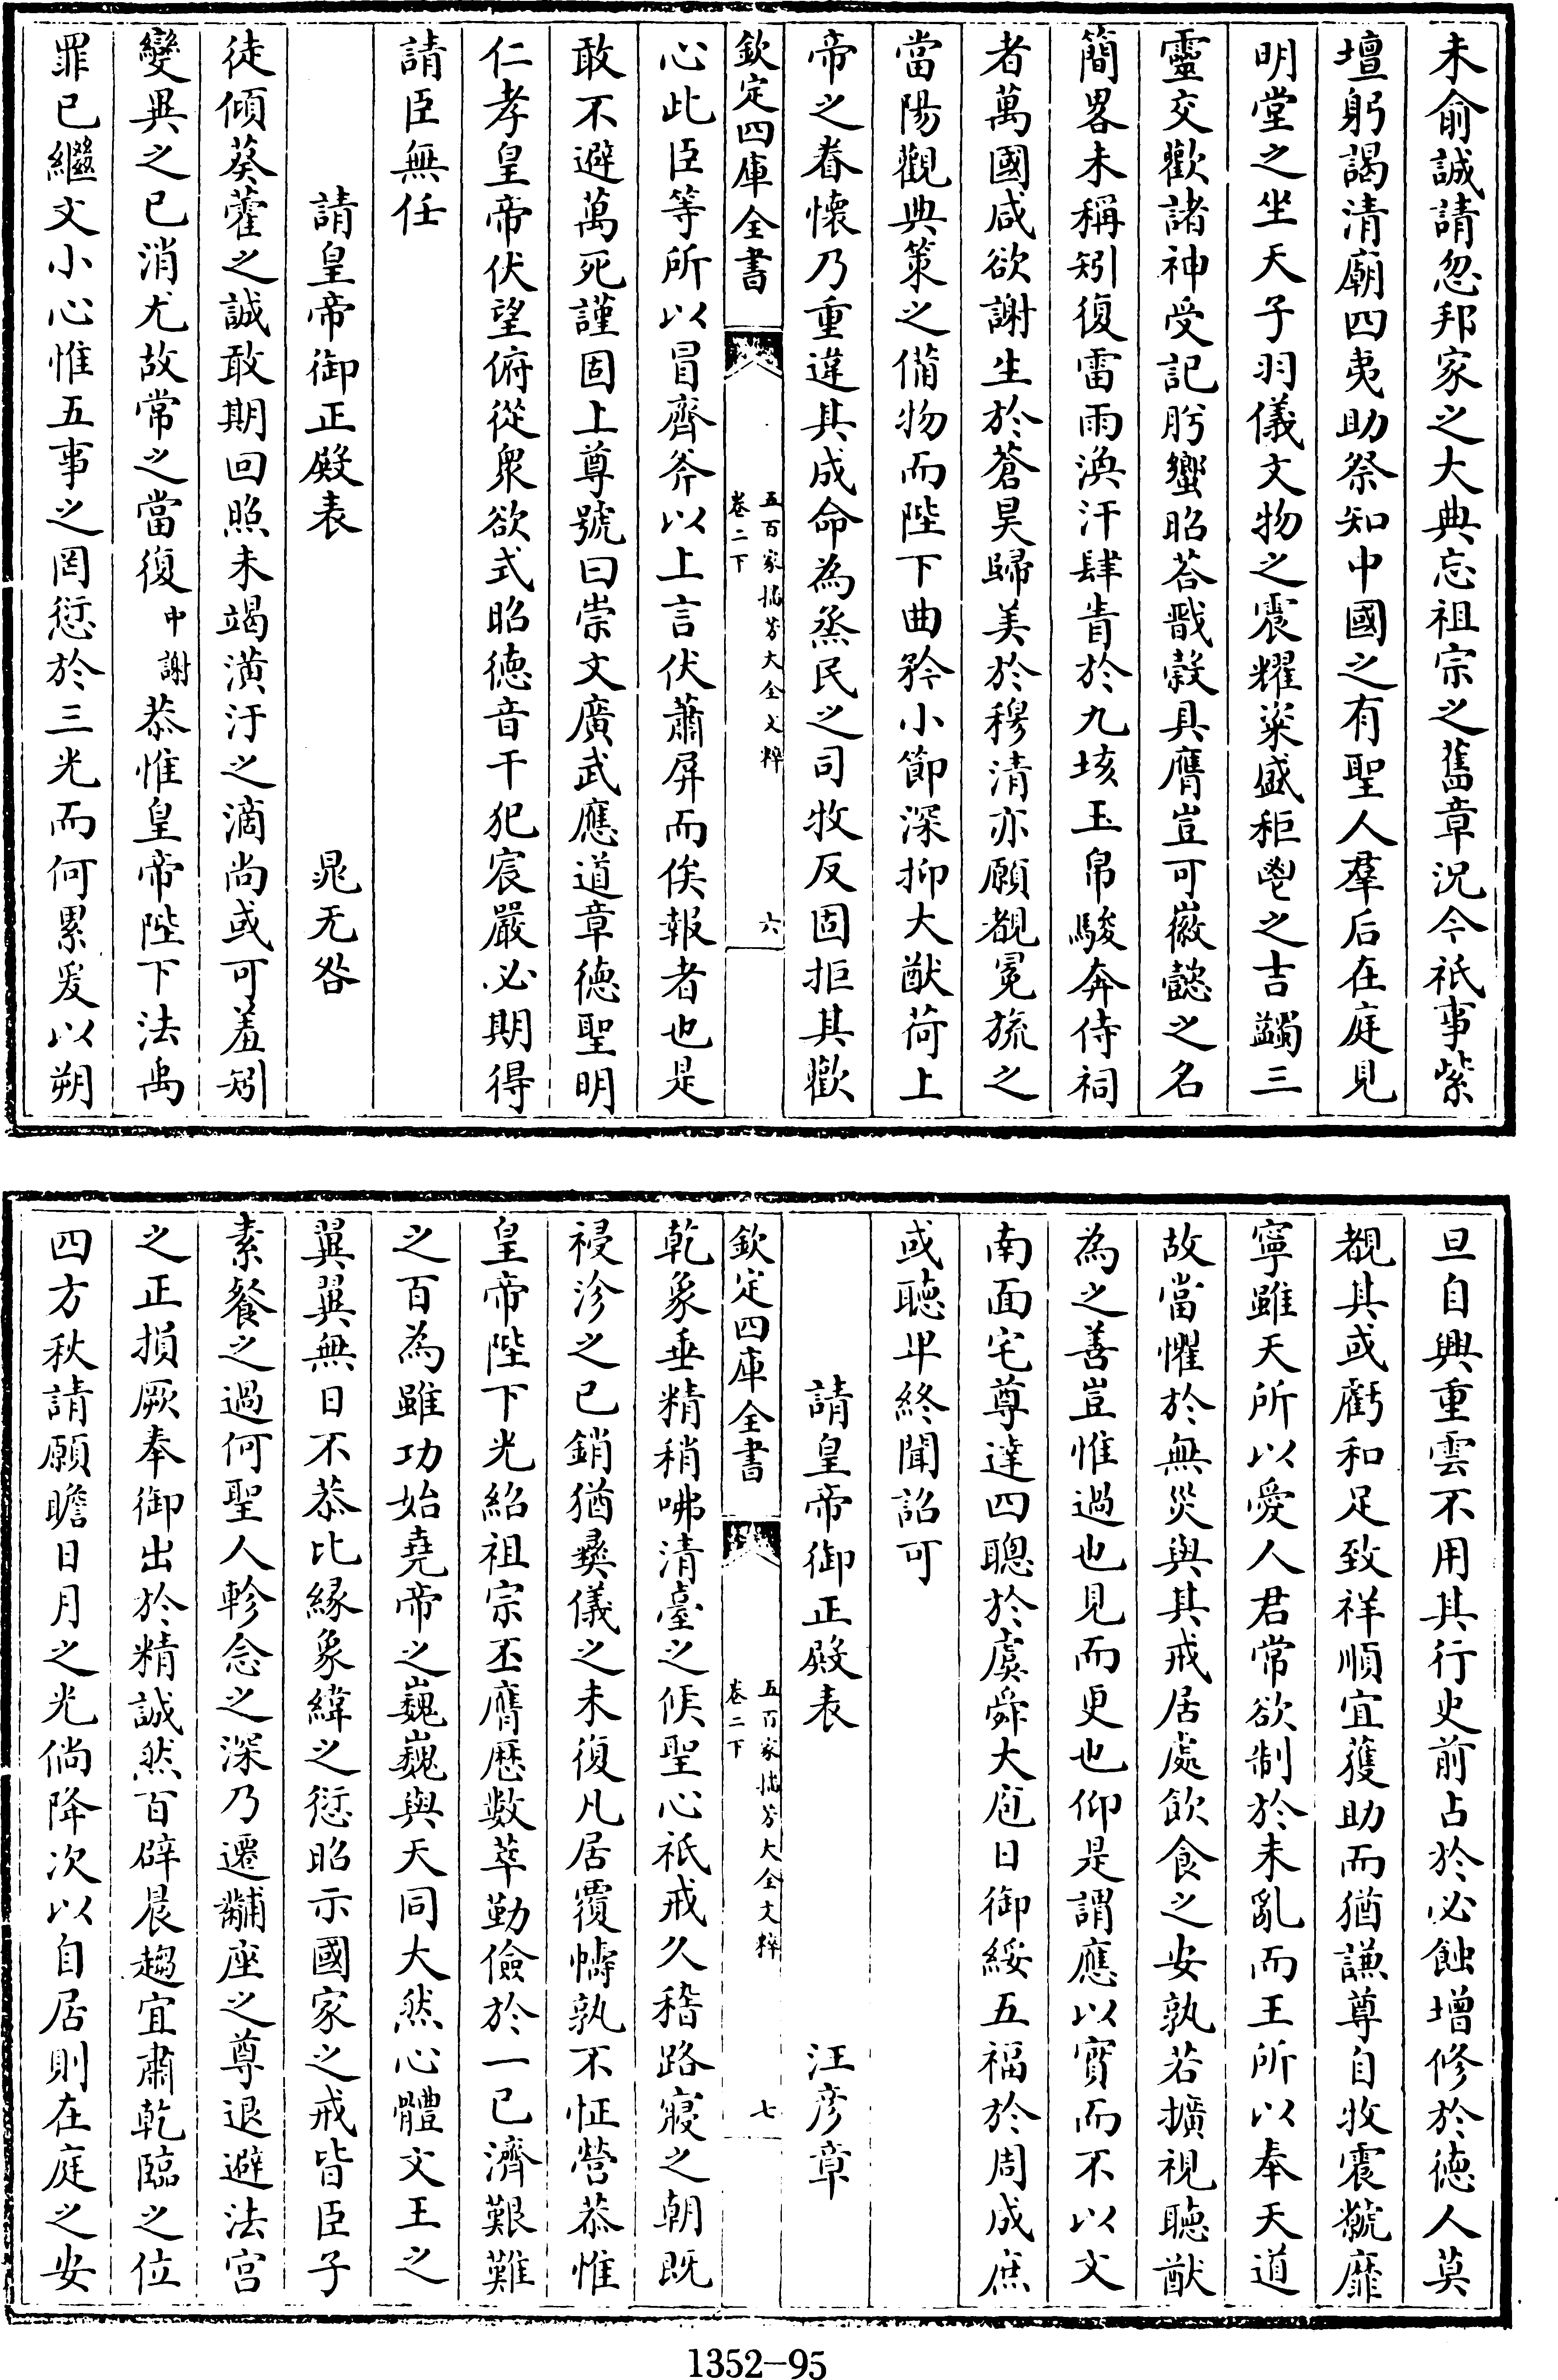 未俞誠請忽邦家之大典忘祖宗之舊章況今祇事紫
壇躬謁清廟四夷助祭知中國之有聖人羣后在庭見
明堂之坐天子羽儀文物之震耀粢盛秬鬯之吉蠲三
靈交歡諸神受記肹蠁昭荅戩榖具膺豈可徽懿之名
簡畧未稱矧復雷雨渙汗肆眚於九垓玉帛駿奔侍祠
者萬國咸欲謝生於蒼昊歸美於穆清亦願覩冕旒之
當陽觀典策之備物而陛下曲矜小節深抑大猷荷上
帝之眷懷乃重違其成命為烝民之司牧反固拒其歡
欽定四庫全書
五百家播芳大全文粹
卷二下
六
心此臣等所以冒齊斧以上言伏蕭屏而俟報者也是
敢不避萬死謹固上尊號曰崇文廣武應道章德聖明
仁孝皇帝伏望俯從衆欲式昭德音干犯宸嚴必期得
請臣無任
請皇帝御正殿表
晁无咎
徒傾葵藿之誠敢期回照未竭潢汙之滴尚或可羞矧
變異之已消尤故常之當復中謝恭惟皇帝陛下法禹
罪已繼文小心惟五事之罔愆於三光而何累爰以朔
旦自興重雲不用其行史前占於必蝕增修於德人莫
覩其或虧和足致祥順宜獲助而猶謙尊自牧震虩靡
寧雖天所以愛人君常欲制於未亂而王所以奉天道
故當懼於無災與其戒居處飲食之安孰若擴視聽猷
為之善豈惟過也見而更也仰是謂應以實而不以文
南面宅尊達四聰於虞舜大庖日御綏五福於周成庶
或聽卑終聞詔可
請皇帝御正殿表
汪彦章
欽定四庫全書
五百家播芳大全文粹
卷二下
七
乾象垂精稍咈清臺之候聖心祇戒久稽路寢之朝既
祲沴之已銷猶彛儀之未復凡居覆幬孰不怔營恭惟
皇帝陛下光紹祖宗丕膺厯數萃勤儉於一已濟艱難
之百為雖功始堯帝之巍巍與天同大然心體文王之
翼翼無日不恭比緣象緯之愆昭示國家之戒皆臣子
素餐之過何聖人軫念之深乃遷黼座之尊退避法宮
之正損厥奉御出於精誠然百辟晨趨宜肅乾臨之位
四方秋請願瞻日月之光倘降次以自居則在庭之安
1352-95